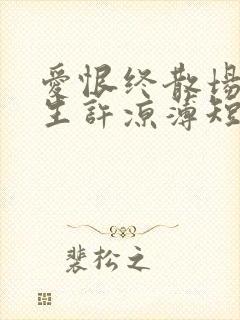 愛恨终散場
生許凉薄短
裴松之